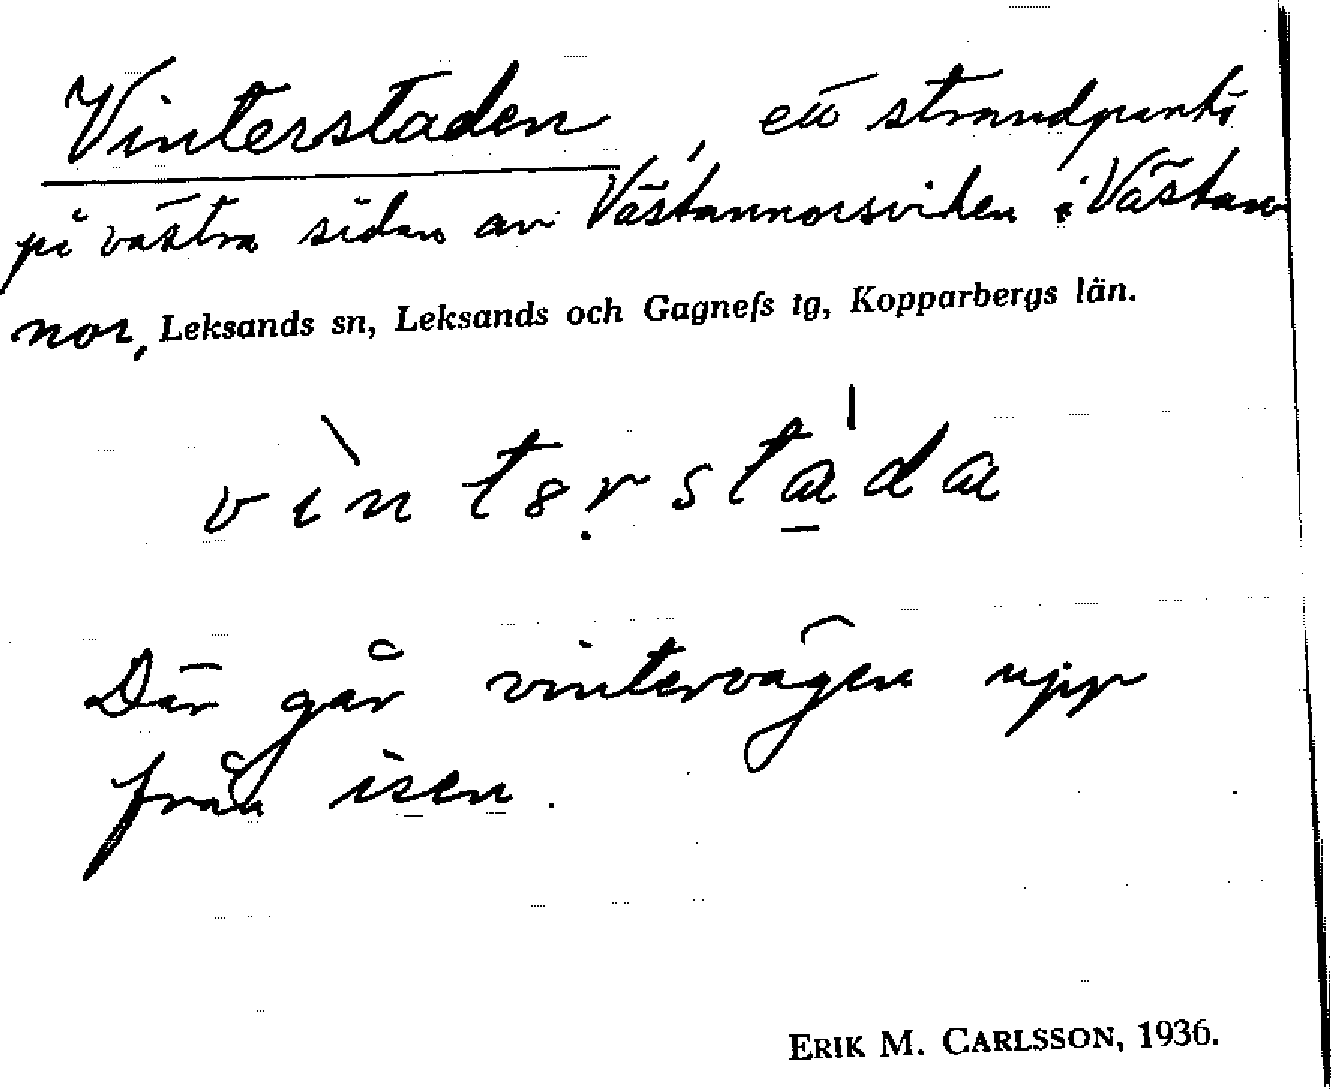 Vinterstaden, ett strandparti
på västra sidan av Västannorsviken i Västan-
nor, Leksands sn, Leksands och Gagnefs tg, Kopparbergs län.
vìntərsta̱'da
Där går vintervägen upp
från isen.
ERIK M. CARLSSON, 1936.